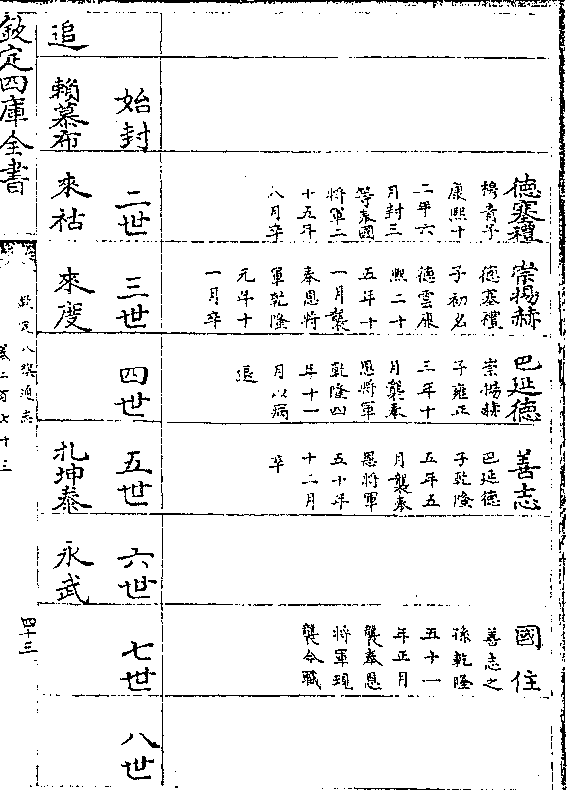 德塞禮
穆青子
康熙十
二年六
月封三
等奉國
將軍二
十五年
八月卒
崇揚赫
德塞禮
子初名
德雲康
熙二十
五年十
一月襲
奉恩將
軍乾隆
元年十
一月卒
巴延德
崇揚赫
子雍正
三年十
月襲奉
恩將軍
乾隆四
年十一
月以病
退
善志
巴延德
子乾隆
五年五
月襲奉
恩將軍
五十年
十二月
卒
國住
善志之
孫乾隆
五十一
年正月
襲奉恩
將軍現
襲今職
始封
二世
三世
四世
五世
六世
七世
八世
追
賴慕布
來祜
來度
札坤泰
永武
欽定四庫全書
欽定八旗通志
卷二百七十三
四十三